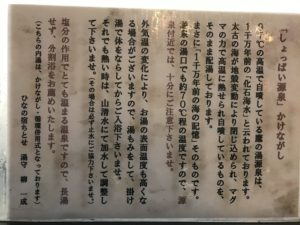 「しょっぱい源泉」かけながし
97℃の高温で自噴している鷹の湯源泉は、
1千万年前の「化石海水」と云われております。
太古の海が地殻変動により閉じ込められ、マグ
マの力で高温に熱せられ自噴しているものを、
そのまま配湯しております。
まさに1千万年前の海の記憶 そのものです。
湯口でも約70℃前後の温度ですので、源
泉付近では、十分にご注意下さいませ。
外気温の変化により、お湯の表面温度も高くな
る場合がございますので、湯もみをして、掛け
湯で体をならしてからご入浴下さいませ。
それでも熱い時は、山清水にて加水して調整し
て下さいませ。(その場合は必ず止水にご協力下さいませ。)
塩分の作用でとても温まる温泉ですので、長湯
せず、分割浴をお薦めいたします。
(こちらの内湯は、かけながし・循環併用式となっております)
ひなの宿ちとせ 湯守 柳 一成